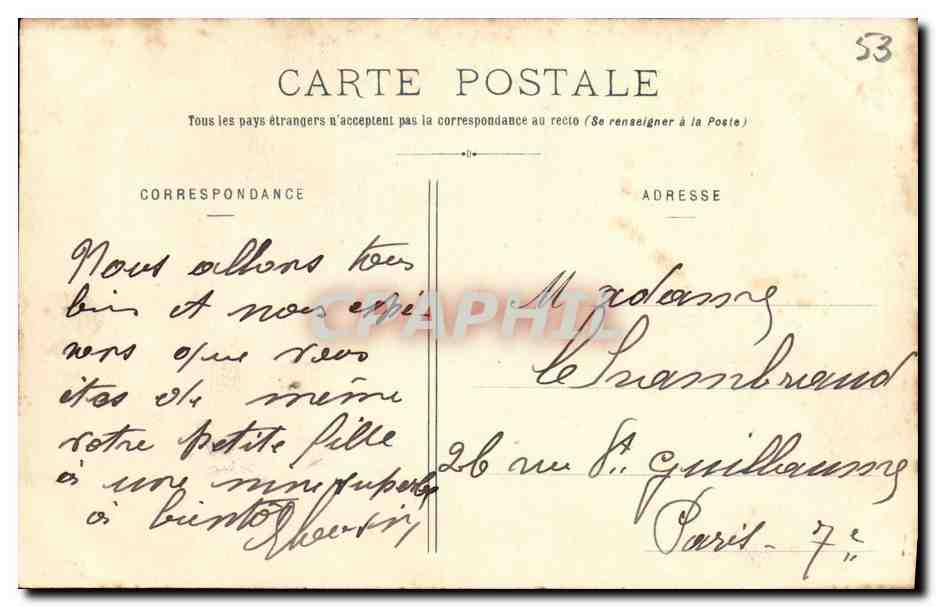 53
CARTE POSTALE
Tous les pays étrangers n'acceptent pas la correspondance au recto (Se renseigner à la Poste)
CORRESPONDANCE
ADRESSE
Nous allons tous
bien et nous espé
rons que vous
êtes de même
votre petite fille
a une mine superbe
à bientôt
CPAPHIL
Madame
26 rue St. Guillaume
Paris - 7e